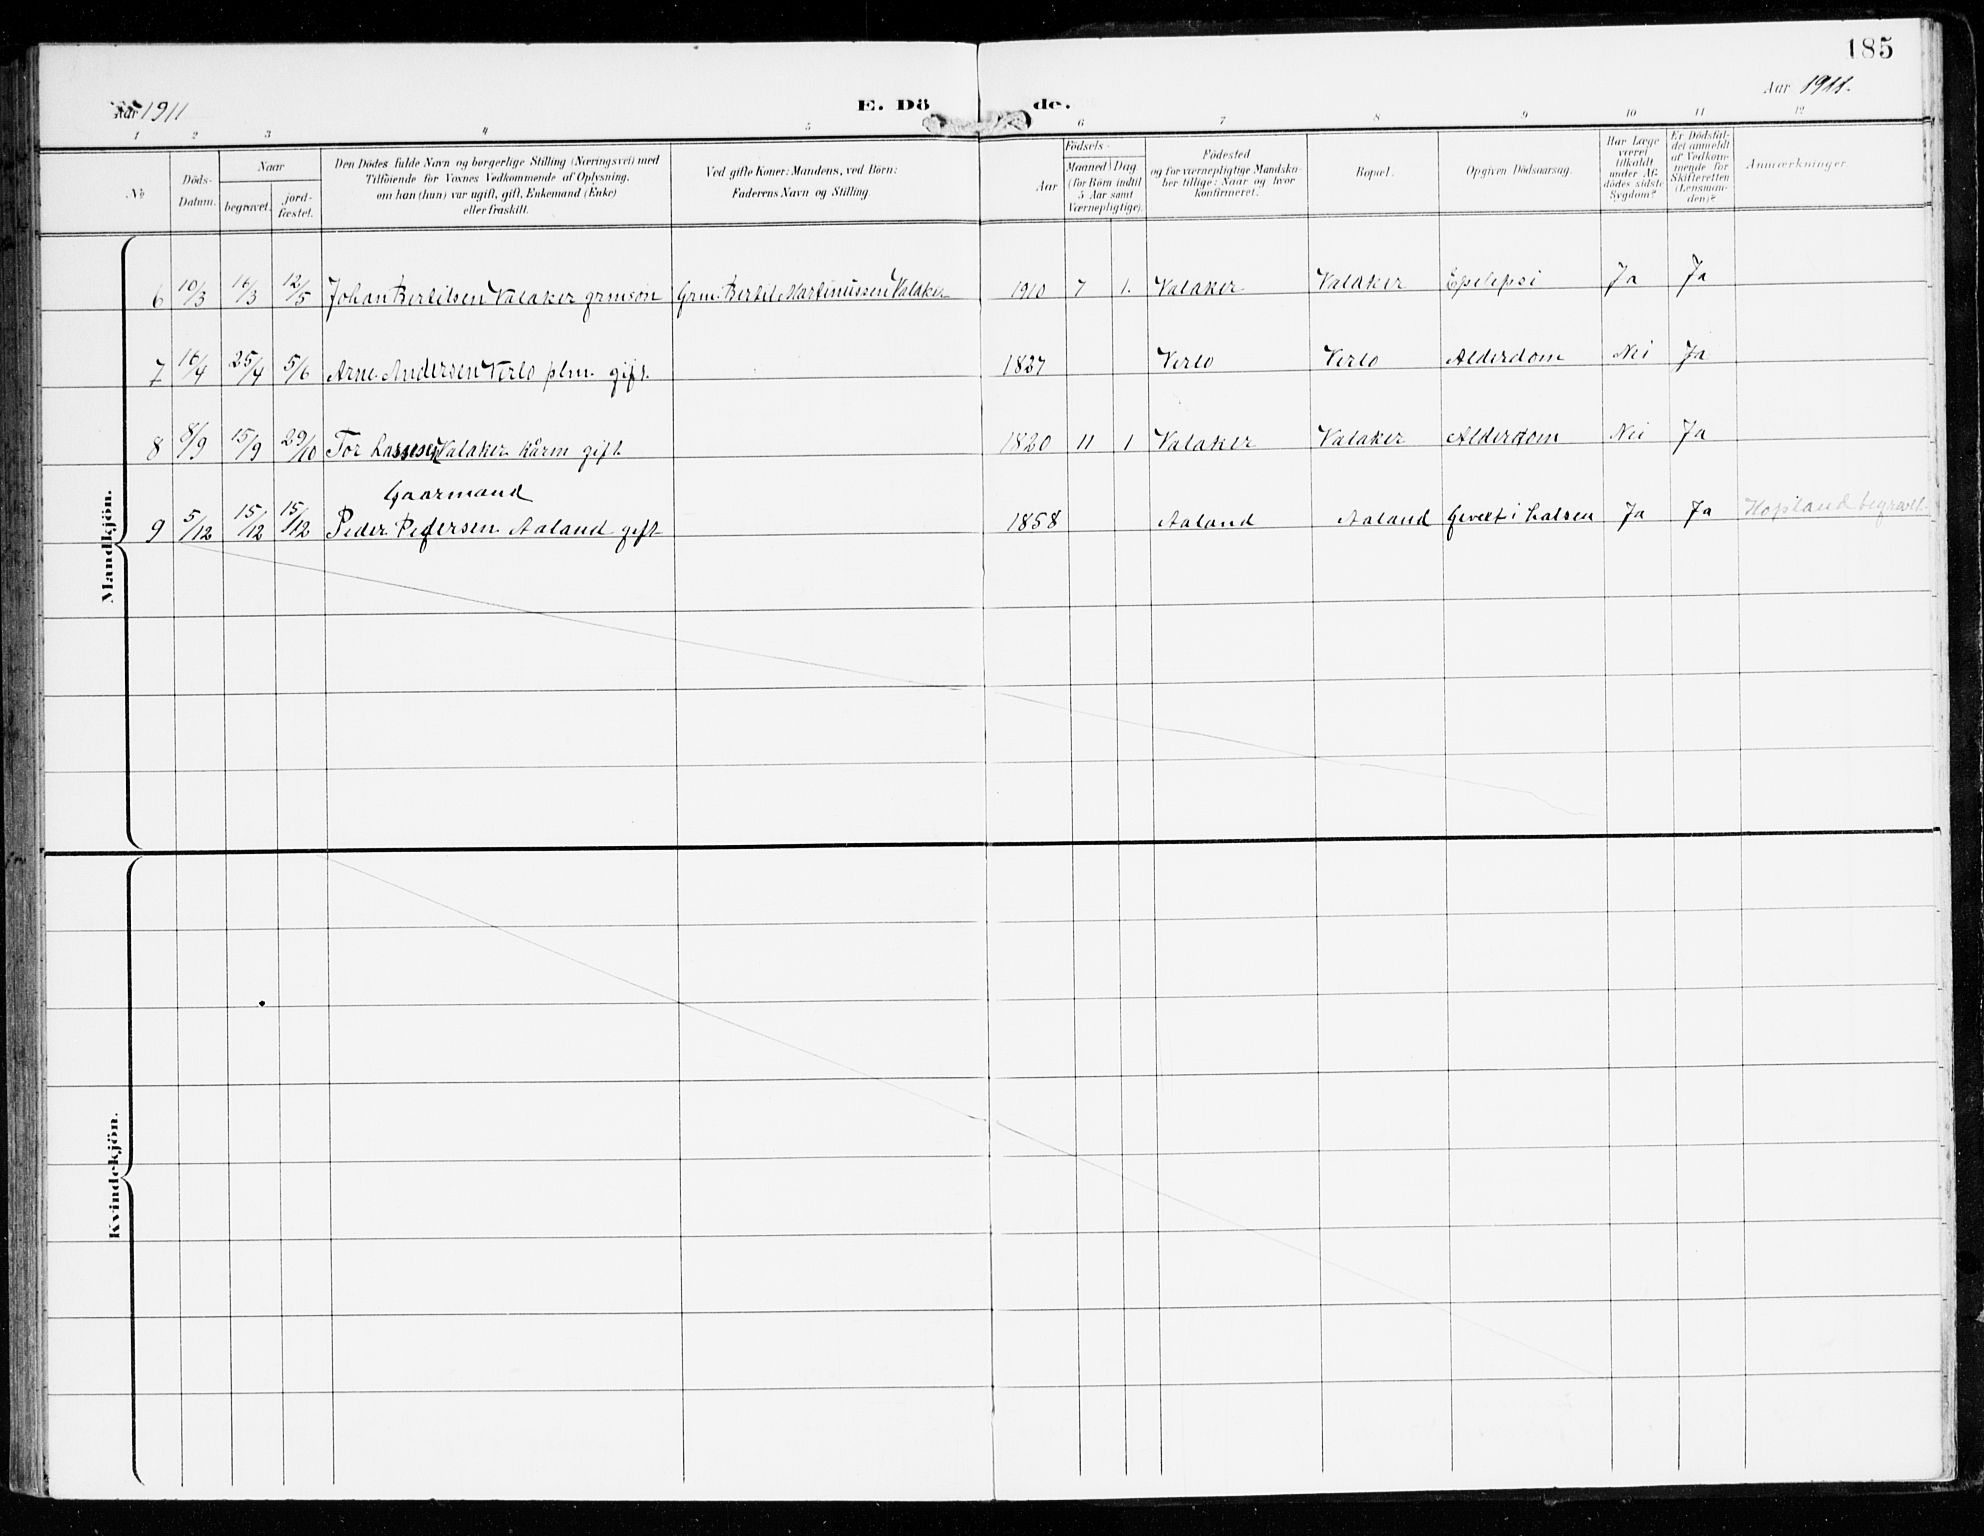 185
Aar 1911
E. Dö de.
Aar 1911.
1 2 3 4 5 6 7 8 9 10 11 12
No.
Döds-Datum.
Naar
begravet.
jord-fæstet.
Den Dödes fulde Navn og borgerlige Stilling (Næringsvei) med
Tilföiende for Voxnes Vedkommende af Oplysning,
om han (hun) var ugift, gift, Enkemand (Enke)
eller fraskilt.
Ved gifte Koner: Mandens, ved Börn:
Faderens Navn og Stilling.
Födsels-
Aar
Maaned Dag
(for Börn indtil
5 Aar samt
Værnepligtige).
Födested
og for værnepligtige Mandska-
ber tillige: Naar og hvor
konfirmeret.
Bopæl.
Opgiven Dödsaarsag.
Har Læge
været
tilkaldt
under Af-
dödes sidste
Sygdom?
Er Dödsfal-
det anmeldt
af Vedkom-
mende for
Skifteretten
(Lensman-
den)?
Anmærkninger.
Mandkjön.
6 10/3 16/3 12/5 Johan Bertilsen Valaker grmsön Grm. Bertil Martinussen Valaker 1910 7 1. Valaker Valaker Epelepsi Ja Ja
7 16/4 25/4 5/6 Arne Andersen Verlo plm. gift. 1827 Verlo Verlo Alderdom Nei Ja
8 8/9 15/9 29/10 Tor Lassesen Valaker kårm gift. 1820 11 1 Valaker Valaker Alderdom Nei Ja
Gaarmand
9 5/12 15/12 15/12 Peder Pedersen Aaland gift 1858 Aaland Aaland Gevext i halsen Ja Ja Hopland begravet.
Kvindekjön.